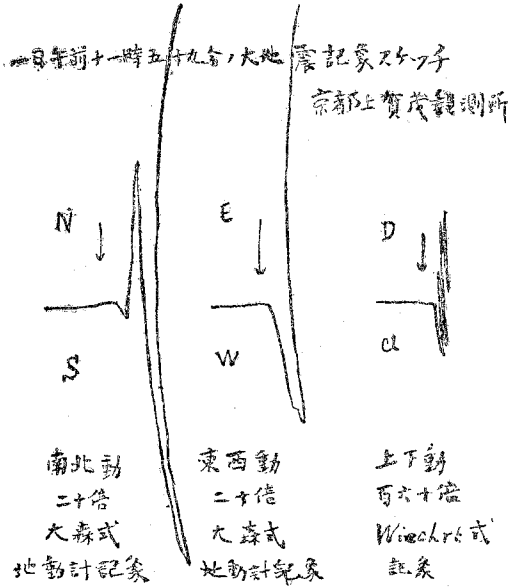 一日午前十一時五十九分,大地震記象スケッチ
京都上賀茂観測所
N
S
E
W
D
U
南北動
二十倍
大森式
地動計記象
東西動
二十倍
大森式
地動計記象
上下動
百六十倍
Wiechrt式
記象